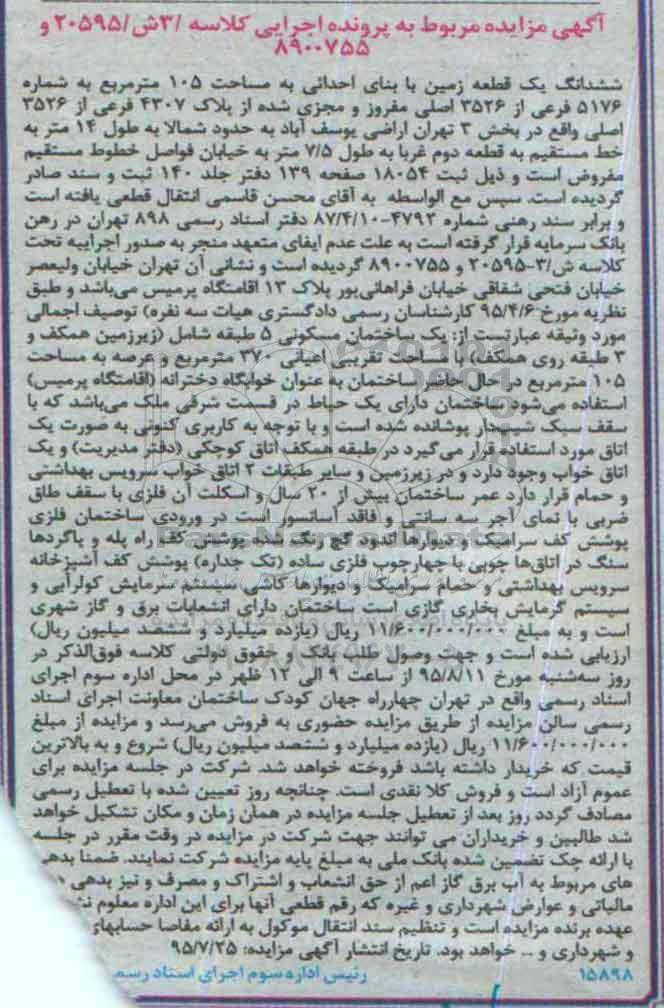 آگهی مزایده مربوط به پرونده اجرایی کلاسه /۳ش/۲۰۵۹۵ و
۸۹۰۰۷۵۵
ششدانگ یک قطعه زمین با بنای احداثی به مساحت ۱۰۵ مترمربع به شماره
۵۱۷۶ فرعی از ۳۵۲۶ اصلی مفروز و مجزی شده از پلاک ۴۳۰۷ فرعی از ۳۵۲۶
اصلی واقع در بخش ۳ تهران اراضی یوسف آباد به حدود شمالا به طول ۱۴ متر به
خط مستقیم به قطعه دوم غربا به طول ۷/۵ متر به خیابان فواصل خطوط مستقیم
مفروض است و ذیل ثبت ۱۸۰۵۴ صفحه ۱۳۹ دفتر جلد ۱۴۰ ثبت و سند صادر
گردیده است. سپس مع الواسطه به آقای محسن قاسمی انتقال قطعی یافته است
و برابر سند رهنی شماره ۴۷۹۲-۸۷/۴/۱۰ دفتر اسناد رسمی ۸۹۸ تهران در رهن
بانک سرمایه قرار گرفته است به علت عدم ایفای متعهد منجر به صدور اجراییه تحت
کلاسه ش/۳-۲۰۵۹۵ و ۸۹۰۰۷۵۵ گردیده است و نشانی آن تهران خیابان ولیعصر
خیابان فتحی شقاقی خیابان فراهانی‌پور پلاک ۱۳ اقامتگاه پرمیس می‌باشد و طبق
نظریه مورخ ۹۵/۴/۶ کارشناسان رسمی دادگستری هیات سه نفره) توصیف اجمالی
مورد وثیقه عبارتست از: یک ساختمان مسکونی ۵ طبقه شامل (زیرزمین همکف و
۳ طبقه روی همکف) با مساحت تقریبی اعیانی ۳۷۰ مترمربع و عرصه به مساحت
۱۰۵ مترمربع در حال حاضر ساختمان به عنوان خوابگاه دخترانه (اقامتگاه پرمیس)
استفاده می‌شود ساختمان دارای یک حیاط در قسمت شرقی ملک می‌باشد که با
سقف سبک شیبدار پوشانده شده است و با توجه به کاربری کنونی به صورت یک
اتاق مورد استفاده قرار می‌گیرد در طبقه همکف اتاق کوچکی (دفتر مدیریت) و یک
اتاق خواب وجود دارد و در زیرزمین و سایر طبقات ۲ اتاق خواب سرویس بهداشتی
و حمام قرار دارد عمر ساختمان بیش از ۲۰ سال و اسکلت آن فلزی با سقف طاق
ضربی با نمای آجر سه سانتی و فاقد آسانسور است در ورودی ساختمان فلزی
پوشش کف سرامیک و دیوارها اندود گچ رنگ شده پوشش کف راه پله و پاگردها
سنگ در اتاق‌ها چوبی با چهارچوب فلزی ساده (تک جداره) پوشش کف آشپزخانه
سرویس بهداشتی و حمام سرامیک و دیوارها کاشی سیستم سرمایش کولرآبی و
سیستم گرمایش بخاری گازی است ساختمان دارای انشعابات برق و گاز شهری
است و به مبلغ ۱۱/۶۰۰/۰۰۰/۰۰۰ ریال (یازده میلیارد و ششصد میلیون ریال)
ارزیابی شده است و جهت وصول طلب بانک و حقوق دولتی کلاسه فوق‌الذکر در
روز سه‌شنبه مورخ ۹۵/۸/۱۱ از ساعت ۹ الی ۱۲ ظهر در محل اداره سوم اجرای
اسناد رسمی واقع در تهران چهارراه جهان کودک ساختمان معاونت اجرای اسناد
رسمی سالن مزایده از طریق مزایده حضوری به فروش می‌رسد و مزایده از مبلغ
۱۱/۶۰۰/۰۰۰/۰۰۰ ریال (یازده میلیارد و ششصد میلیون ریال) شروع و به بالاترین
قیمت که خریدار داشته باشد فروخته خواهد شد. شرکت در جلسه مزایده برای
عموم آزاد است و فروش کلا نقدی است. چنانچه روز تعیین شده با تعطیل رسمی
مصادف گردد روز بعد از تعطیل جلسه مزایده در همان زمان و مکان تشکیل خواهد
شد طالبین و خریداران می توانند جهت شرکت در مزایده در وقت مقرر در جلسه
با ارائه چک تضمین شده بانک ملی به مبلغ پایه مزایده شرکت نمایند. ضمنا بدهی
های مربوط به آب برق گاز اعم از حق انشعاب و اشتراک و مصرف و نیز بدهی
مالیاتی و عوارض شهرداری و غیره که رقم قطعی آنها برای این اداره معلوم
عهده برنده مزایده است و تنظیم سند انتقال موکول به ارائه مفاصا حسابهای
و شهرداری و ... خواهد بود. تاریخ انتشار آگهی مزایده: ۹۵/۷/۲۵
۱۵۸۹۸ رئیس اداره سوم اجرای اسناد